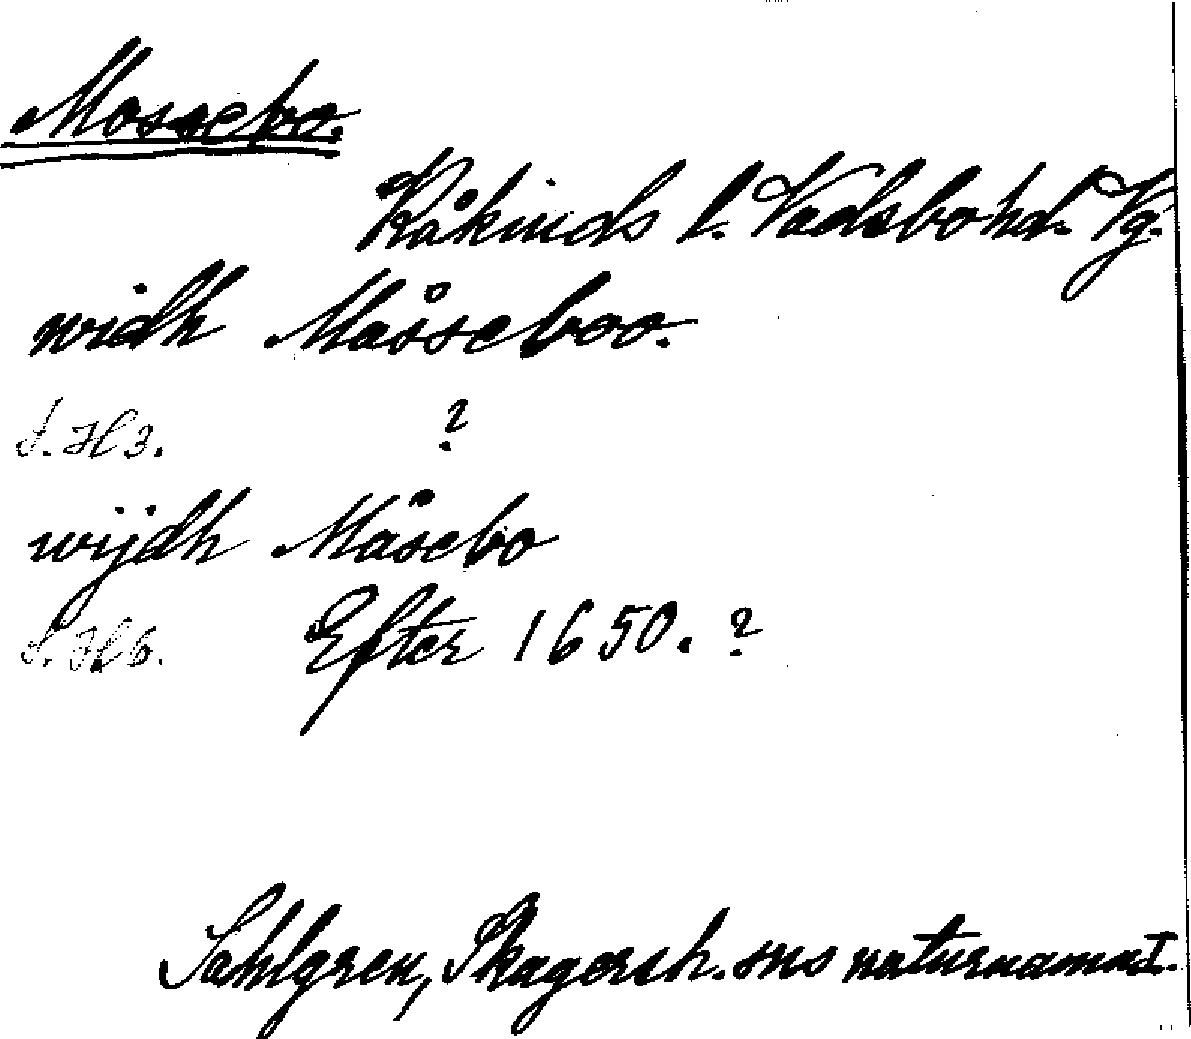 Mossebo.
Kåkinds l. Vadsbo hd. Vg.
widh Måsseboo.
S. Hl 3. ?
wijdh Måsebo
S. Hl 6. Efter 1650. ?
Sahlgren, Skagersh. sns naturnamn I.